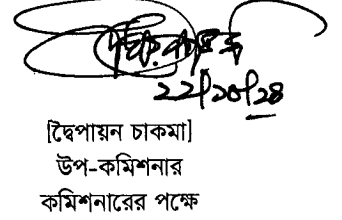 ২২/১০/২৪
[দ্বৈপায়ন চাকমা]
উপ-কমিশনার
কমিশনারের পক্ষে